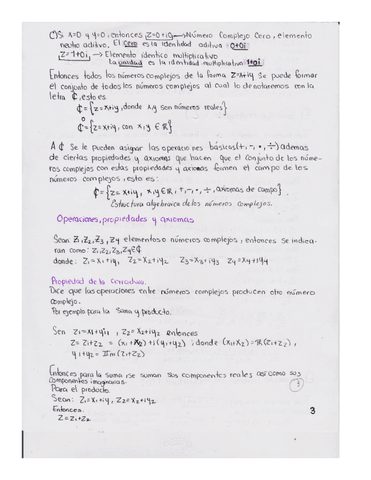 (*) Si x=0 y y=0, entonces Z=0+i0, → Número Complejo Cero, elemento
neutro aditivo. El cero es la identidad aditiva : 0+0i
Z=1+0i, → Elemento idéntico multiplicativo
La unidad es la identidad multiplicativa 1+0i
Entonces todos los números complejos de la forma Z=x+iy Se puede formar
el conjunto de todos los números complejos al cual lo denotaremos con la
letra ₵, esto es
₵ = {z=x+iy, donde x,y son números reales}
o
₵ = {z=x+iy, con x,y ∈ ℝ}
A ₵ Se le pueden asignar las operaciones básicas (+,-,•,÷) ademas
de ciertas propiedades y axiomas que hacen que el conjunto de los núme-
ros complejos con estas propiedades y axiomas formen el campo de los
números complejos, esto es:
₵ = {z=x+iy, x,y ∈ ℝ; +,-,•,÷, axiomas de campo}.
Estructura algebraica de los números complejos.
Operaciones, propiedades y axiomas
Sean Z₁,Z₂,Z₃,Z₄ elementos o números complejos, entonces se indica-
ran como: Z₁,Z₂,Z₃,Z₄∈₵
donde: Z₁=x₁+iy₁ Z₂=x₂+iy₂ Z₃=x₃+iy₃ Z₄=x₄+iy₄
Propiedad de la cerradura.
Dice que las operaciones entre números complejos producen otro número
complejo.
Por ejemplo para la suma y producto.
Sen Z₁=x₁+y₁i, Z₂=x₂+iy₂ entonces
Z=Z₁+Z₂ = (x₁+x₂)+i(y₁+y₂) ; donde (x₁+x₂)=ℝ(z₁+z₂),
y₁+y₂ = Im(z₁+z₂)
Entonces para la suma se suman sus componentes reales así como sus
componentes imaginarias.
3
Para el producto
Sean: Z₁=x₁+iy₁ y Z₂=x₂+iy₂
3
Entonces.
Z=Z₁•Z₂